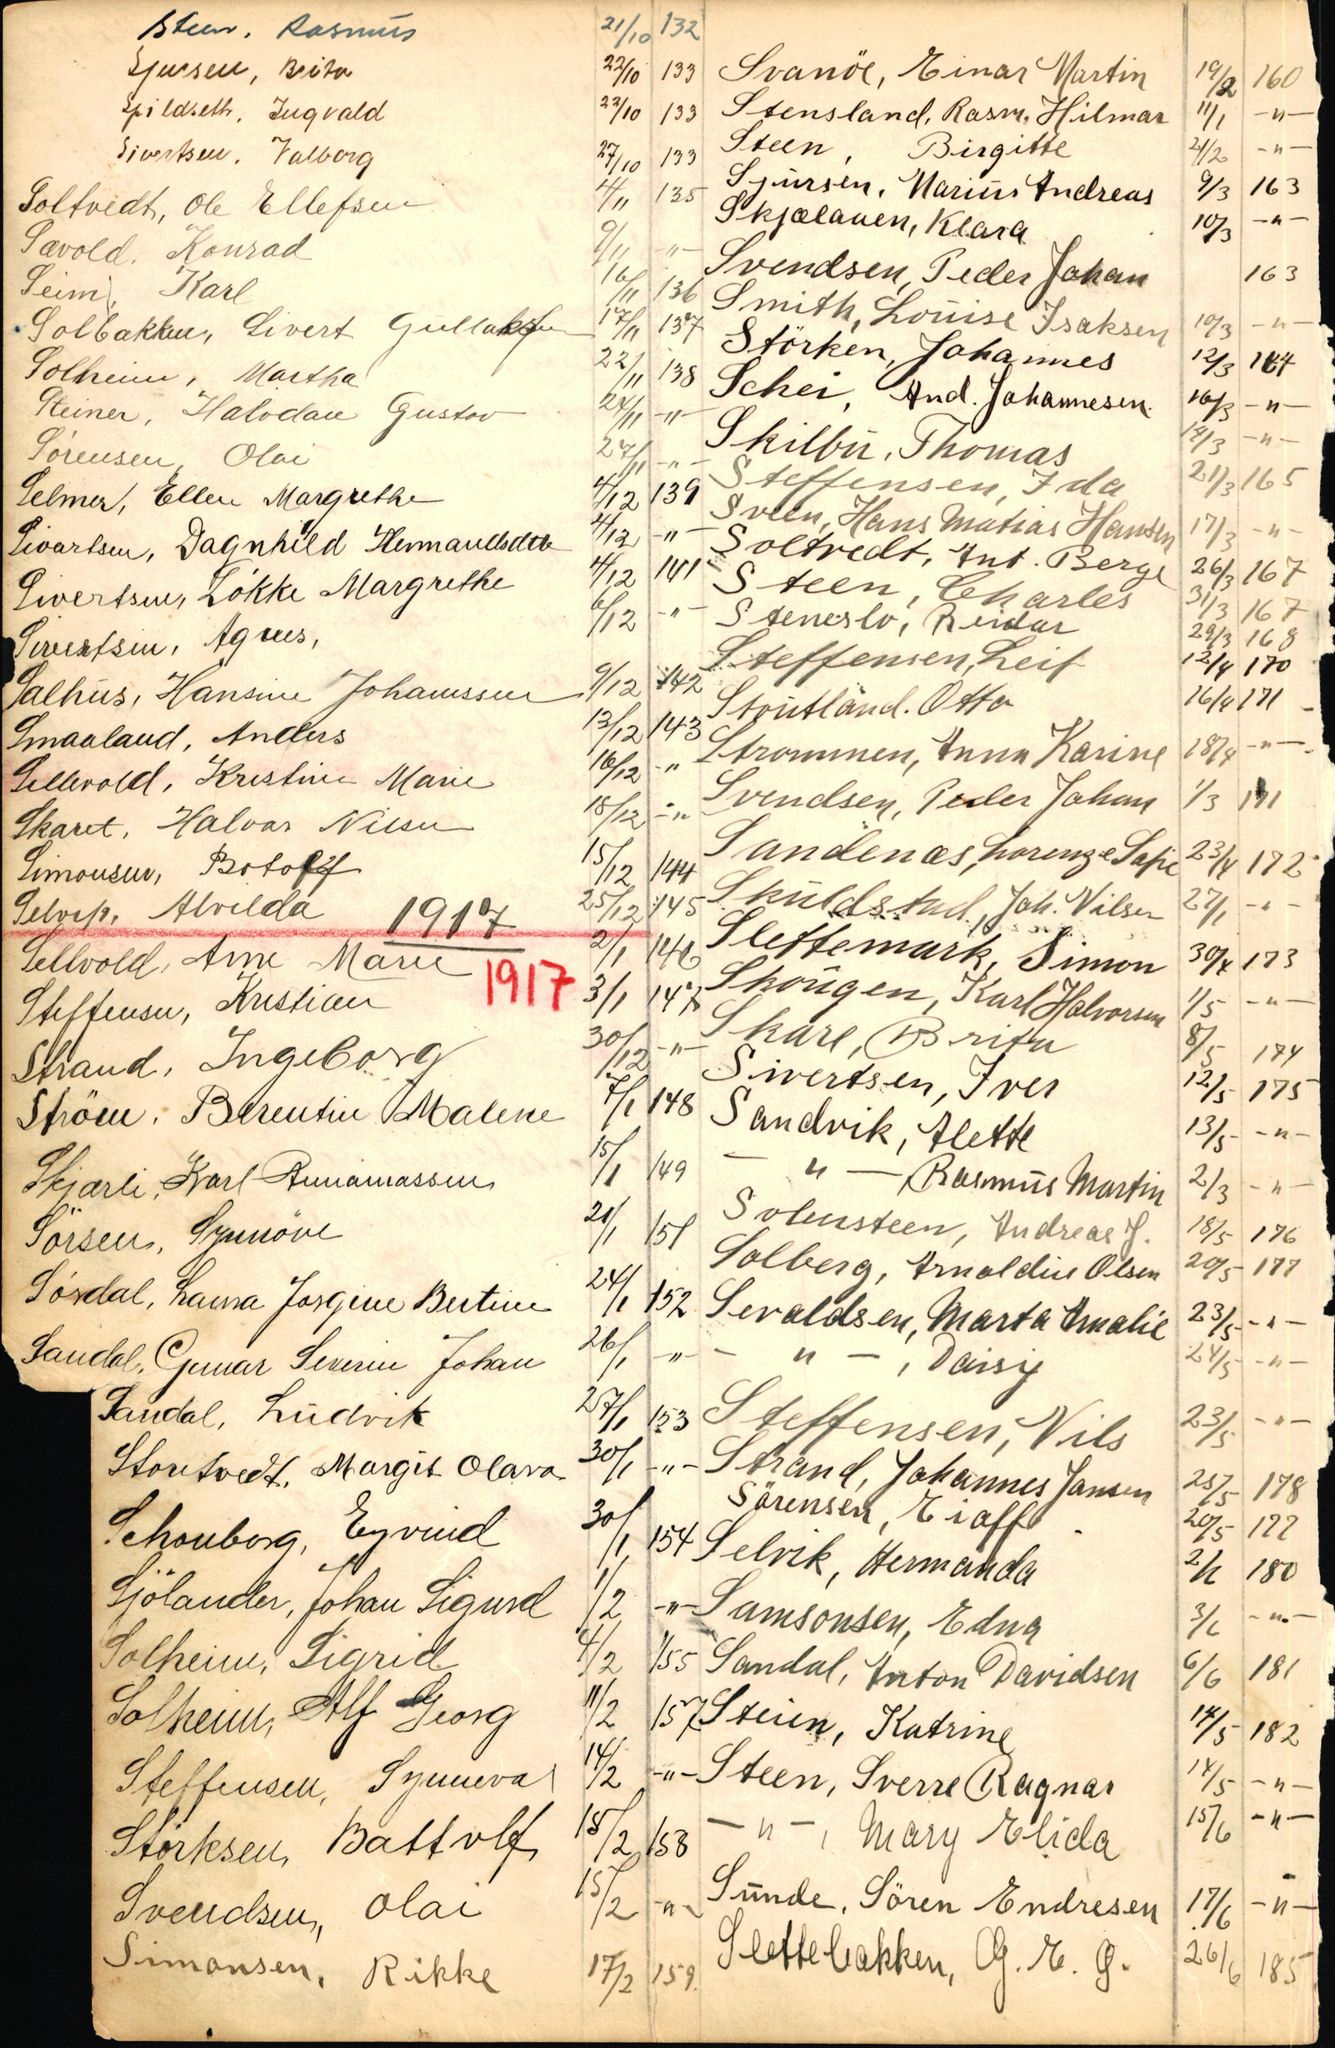 Steen, Rasmus 21/10 132
Sjursen, Brita 22/10 133
Spildseth, Ingvald 23/10 133
Sivertsen, Valborg 27/10 133
Soltvedt, Ole Ellefsen 4/11 135
Sævold, Konrad 9/11 -"-
Seim, Karl 16/11 136
Solbakken, Sivert Gullaksen 17/11 137
Solheim, Martha 22/11 138
Steiner, Halvdan Gustav 24/11 -"-
Sörensen, Olai 27/11 -"-
Selmer, Ellen Margrethe 4/12 139
Sivartsen, Dagnhild Hermandsdtr 4/12 -"-
Sivertsen, Lökke Margrethe 4/12 141
Sivertsen, Agnes, 6/12 -"-
Salhus, Hansine Johanssen 9/12 142
Smaaland, Anders 13/12 143
Sellevold, Kristine Marie 16/12 -"-
Skaret, Halvar Nilsen 18/12 -"-
Simonsen, Botolf 15/12 144
Selvip, Alvilda 25/12 145
1917
Sellvold, Arne Marie 2/1 146
1917
Steffensen, Kristian 3/1 147
Strand, Ingeborg 30/12 -"-
Ström, Berentine Malene 7/1 148
Skjærli, Karl 15/1 149
Sörsen, Synnöve 21/1 151
Sördal, Laura Josgine Bertine 24/1 152
Sandal, Gunnar Severin Johan 26/1 -"-
Sandal, Ludvik 27/1 153
Stortvedt, Margit Olava 30/1 -"-
Schouborg, Eyvind 30/1 154
Sjölander, Johan Sigurd 1/2 -"-
Solheim, Sigrid 4/2 155
Solheim, Alf Georg 11/2 157
Steffensen, Synneva 14/2 -"-
Störksen, Battolf 15/2 158
Svendsen, Olai 15/2 -"-
Simonsen, Rikke 17/2 159
Svanöe, Einar Martin 19/2 160
Stensland, Rasm. Hilmar 11/1 -"-
Steen, Birgitte 21/2 -"-
Sjursen, Marius Andreas 9/3 163
Skjælaaen, Klara 10/3 -"-
Svendsen, Peder Johan 163
Smith, Louise Isaksen 10/3 -"-
Störken, Johannes 12/3 164
Schei, And. Johannesen 16/3 -"-
Skilbu, Thomas 14/3 -"-
Steffensen, Ida 21/3 165
Sveen, Hans Matias Hansen 17/3 -"-
Soltvedt, Ant. Berge 26/3 167
Steen, Charles 31/3 167
Steneslo, Reidar 29/3 168
Steffensen, Leif 12/4 170
Stoutland, Otto 16/4 171
Strømmen, Anna Karine 18/4 -"-
Svendsen, Peder Johan 1/3 171
Sandenæs, Lorenze Sofie 23/4 172
Skuldstad, Joh. Nilsen 27/1 -"-
Slettemark, Simon 30/4 173
Skougen, Karl Halvorsen 1/5 -"-
Skare, Brita 8/5 174
Sivertsen, Iver 12/5 175
Sandvik, Alette 13/5 -"-
-"-, Rasmus Martin 2/3 -"-
Solensteen, Andreas J. 18/5 176
Solberg, Arnoldine Olsen 20/5 177
Sevaldsen, Marta Amalie 23/5 -"-
-"-, Daisy 24/5 -"-
Steffensen, Nils 23/5 -"-
Strand, Johannes Jansen 25/5 178
Sörensen, Eiaff 20/5 177
Selvik, Hermanda 2/6 180
Samsonsen, Edna 3/6 -"-
Sandal, Anton Davidsen 6/6 181
Steien, Katrine 14/5 182
Steen, Sverre Ragnar 14/5 -"-
-"-, Mary Elida 15/6 -"-
Sunde, Sören Endresen 17/6 -"-
Slettebakken, G. E. G. 26/6 185